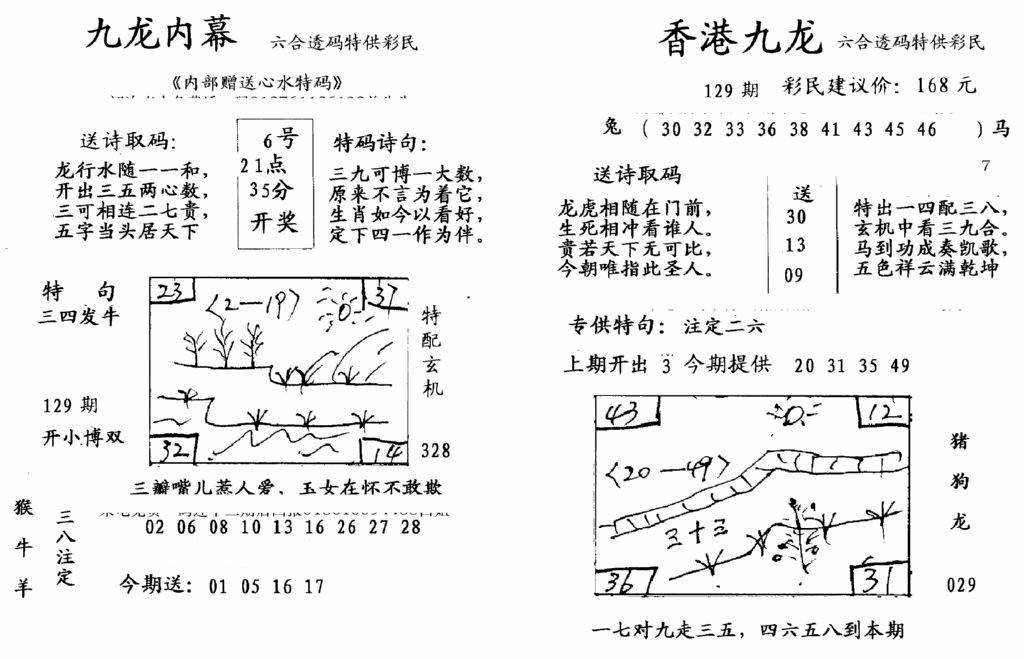 九龙内幕 六合透码特供彩民
《内部赠送心水特码》
送诗取码:
龙行水随一一和,
开出三五两心数,
三可相连二七贵,
五字当头居天下
6号
21点
35分
开奖
特码诗句:
三九可博一大数,
原来不言为着它,
生肖如今以看好,
定下四一作为伴。
特 句
三四发牛
129 期
开小博双
23
37
<2—19>
32
14
特配玄机
328
三瓣嘴儿惹人爱, 玉女在怀不敢欺
02 06 08 10 13 16 26 27 28
猴牛羊
三八注定
今期送: 01 05 16 17
香港九龙 六合透码特供彩民
129 期 彩民建议价: 168 元
兔 ( 30 32 33 36 38 41 43 45 46 ) 马
7
送诗取码
龙虎相随在门前,
生死相冲看谁人。
贵若天下无可比,
今朝唯指此圣人。
送
30
13
09
特出一四配三八,
玄机中看三九合。
马到功成奏凯歌,
五色祥云满乾坤
专供特句: 注定二六
上期开出 3 今期提供 20 31 35 49
43
12
<20—49>
三十三
36
31
猪
狗
龙
029
一七对九走三五, 四六五八到本期